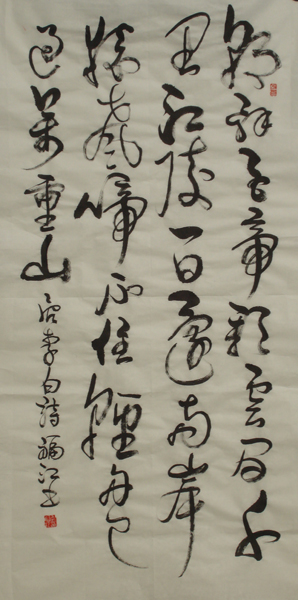 朝辞白帝彩雲间千
里江陵一日還两岸
猿聲啼不住輕舟已
過萬重山
李白詩 江书